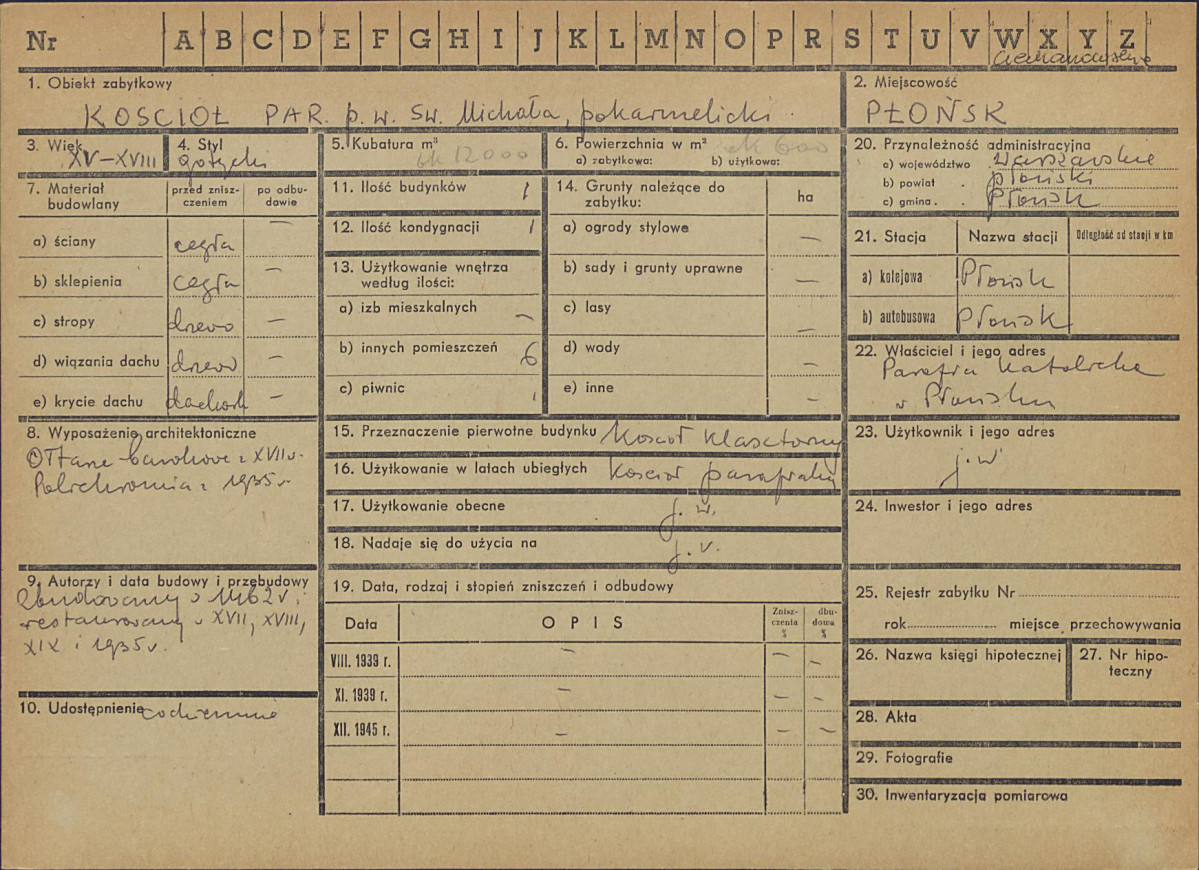 Nr A B C D E F G H I J K L M N O P R S T U V W X Y Z
1. Obiekt zabytkowy
KOSCIOŁ PAR. p. w. Sw. Michała, pokarmelicki
2. Miejscowość
PŁOŃSK
3. Wiek
XV–XVIII
4. Styl
gotycki
5. Kubatura m³
ok 12000
6. Powierzchnia w m²
a) zabytkowa: b) użytkowa:
ok 600
7. Materiał budowlany
przed znisz-
czeniem
po odbu-
dowie
–
a) ściany cegła
b) sklepienia cegła –
c) stropy drzewo –
d) wiązania dachu drzewo –
e) krycie dachu dachówk –
8. Wyposażenie architektoniczne
Ołtarze barokowe z XVII w.
Polichromia z 1935 r.
9. Autorzy i data budowy i przebudowy
Zbudowany w 1462 r,
restaurowany w XVII, XVIII,
XIX i 1935 r.
10. Udostępnienie codziennie
11. Ilość budynków 1
12. Ilość kondygnacji 1
13. Użytkowanie wnętrza
według ilości:
a) izb mieszkalnych –
b) innych pomieszczeń 6
c) piwnic
14. Grunty należące do
zabytku:
ha
a) ogrody stylowe –
b) sady i grunty uprawne –
c) lasy –
d) wody –
e) inne –
15. Przeznaczenie pierwotne budynku Kosciół Klasztorny
16. Użytkowanie w latach ubiegłych Kosciół parafialny
17. Użytkowanie obecne j. w.
18. Nadaje się do użycia na j. w.
19. Data, rodzaj i stopień zniszczeń i odbudowy
Data OPIS Znisz-
czenia
%
dbu-
dowa
%
VIII. 1939 r. – – –
XI. 1939 r. – – –
XII. 1945 r. – – –
20. Przynależność administracyjna
a) województwo Warszawskie
b) powiat . płoński
c) gmina . . Płońsk
21. Stacja Nazwa stacji Odległość od stacji w km
a) kolejowa Płońsk
b) autobusowa Płońsk
22. Właściciel i jego adres
Parafia Katolicka
w Płońsku
23. Użytkownik i jego adres
j. w
24. Inwestor i jego adres
25. Rejestr zabytku Nr
rok miejsce przechowywania
26. Nazwa księgi hipotecznej
27. Nr hipo-
teczny
28. Akta
29. Fotografie
30. Inwentaryzacja pomiarowa